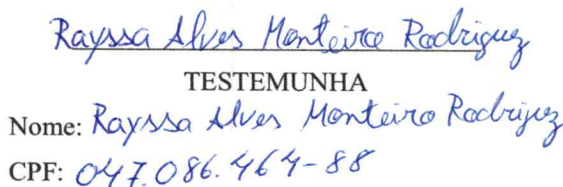 Rayssa Alves Monteiro Rodriguez
TESTEMUNHA
Nome: Rayssa Alves Monteiro Rodriguez
CPF: 047.086.464-88